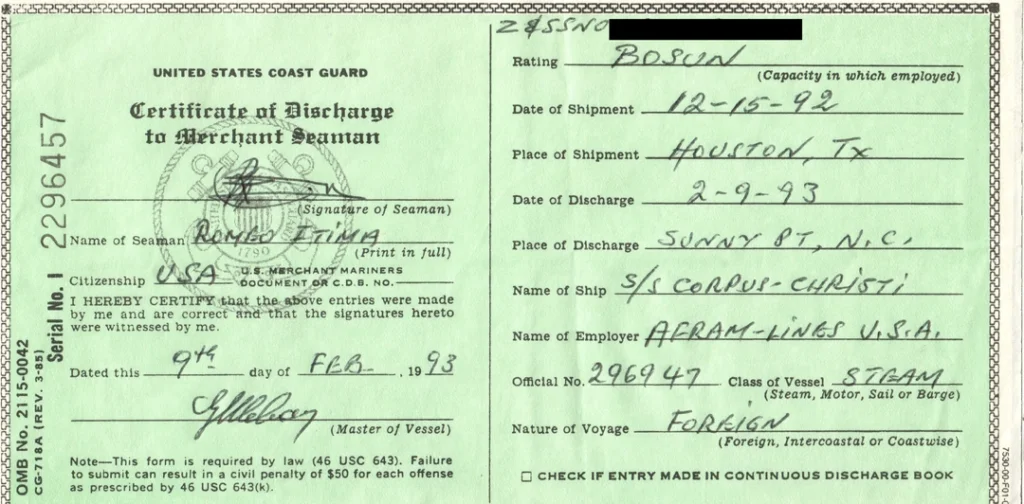 UNITED STATES COAST GUARD
Certificate of Discharge
to Merchant Seaman
(Signature of Seaman)
Name of Seaman ROMEO ITIMA
(Print in full)
Citizenship USA U.S. MERCHANT MARINERS
DOCUMENT OR C.D.B. NO.
I HEREBY CERTIFY that the above entries were made
by me and are correct and that the signatures hereto
were witnessed by me.
Dated this 9th day of FEB , 19 93
(Master of Vessel)
Note—This form is required by law (46 USC 643). Failure
to submit can result in a civil penalty of $50 for each offense
as prescribed by 46 USC 643(k).
Serial No. 1 2296457
OMB No. 2115-0042
CG-718A (REV. 3-85)
SSNO
Rating BOSUN
(Capacity in which employed)
Date of Shipment 12-15-92
Place of Shipment HOUSTON, TX
Date of Discharge 2-9-93
Place of Discharge SUNNY PT, N.C.
Name of Ship S/S CORPUS-CHRISTI
Name of Employer AFRAM-LINES U.S.A.
Official No. 296947 Class of Vessel STEAM
(Steam, Motor, Sail or Barge)
Nature of Voyage FOREIGN
(Foreign, Intercoastal or Coastwise)
☐ CHECK IF ENTRY MADE IN CONTINUOUS DISCHARGE BOOK
1790